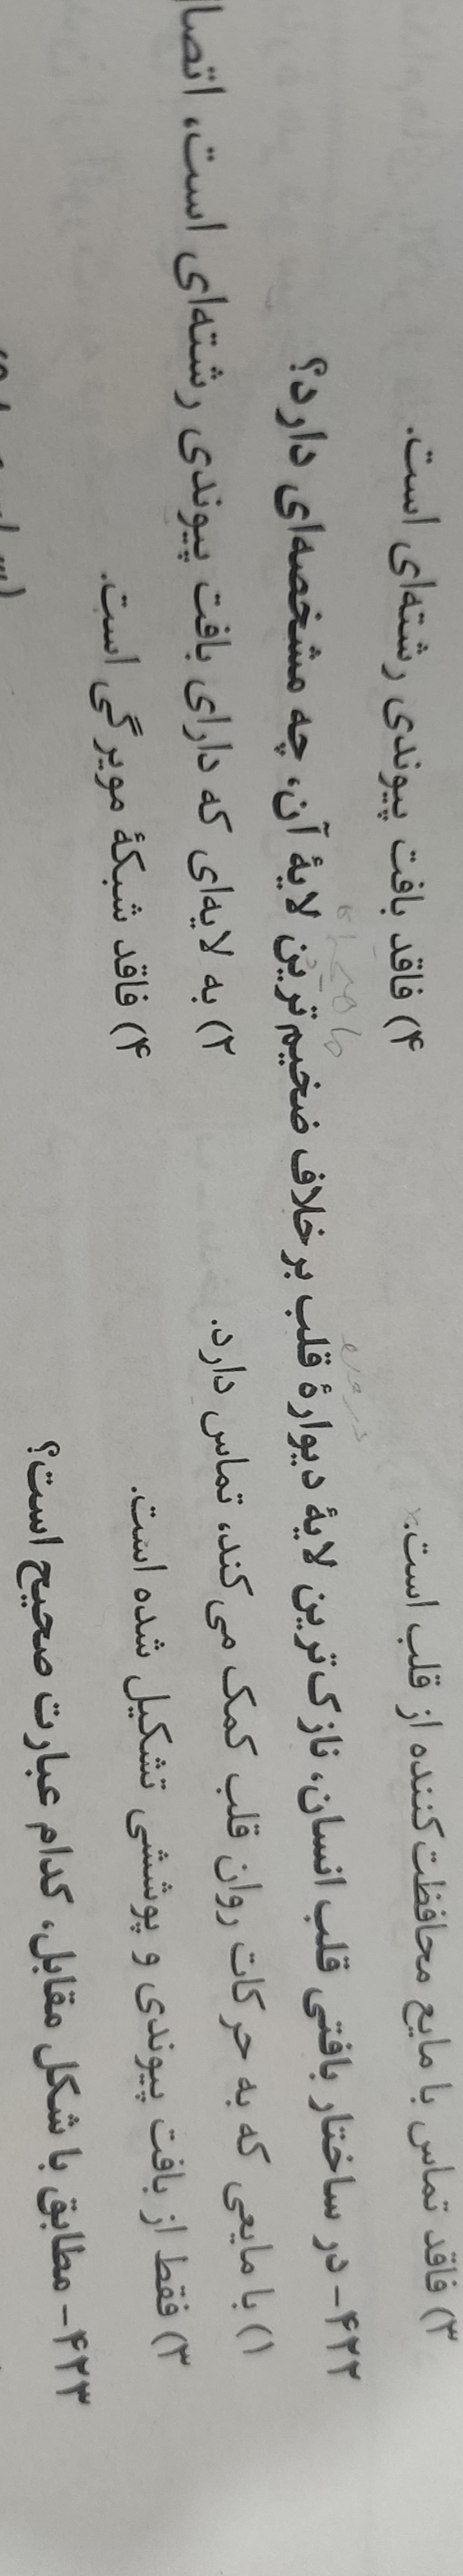 ۳) فاقد تماس با مایع محافظت‌کننده از قلب است. ۴) فاقد بافت پیوندی رشته‌ای است.
۴۲۲- در ساختار بافتی قلب انسان، نازک‌ترین لایهٔ دیوارهٔ قلب برخلاف ضخیم‌ترین لایهٔ آن، چه مشخصه‌ای دارد؟
۱) با مایعی که به حرکات روان قلب کمک می‌کند، تماس دارد. ۲) به لایه‌ای که دارای بافت پیوندی رشته‌ای است، اتصا
۳) فقط از بافت پیوندی و پوششی تشکیل شده است. ۴) فاقد شبکهٔ مویرگی است.
۴۲۳- مطابق با شکل مقابل، کدام عبارت صحیح است؟